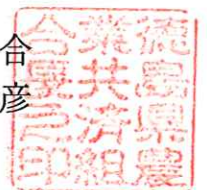 合
彦
徳島県農
業共済組
合之印